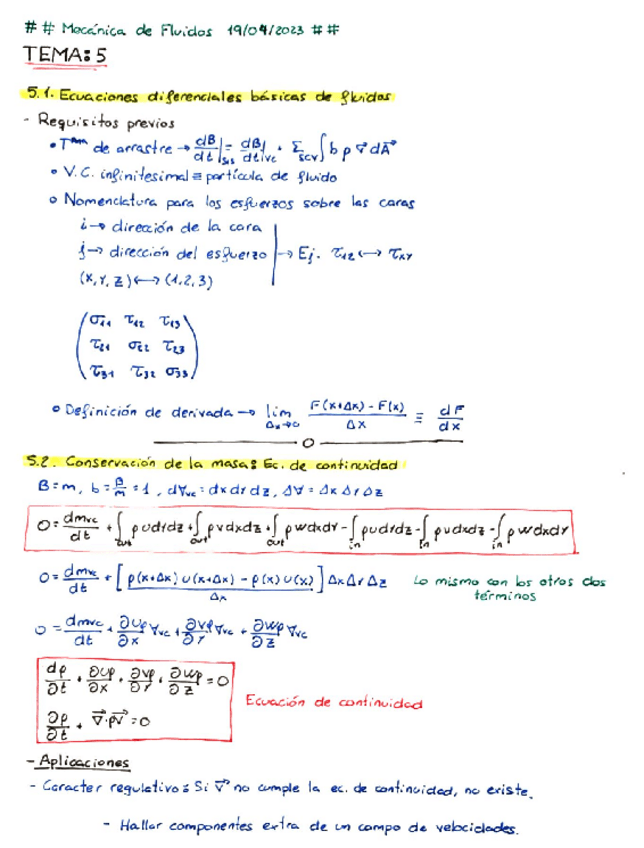 ## Mecánica de Fluidos 19/04/2023 ##
TEMA: 5
5.1. Ecuaciones diferenciales básicas de fluidos
- Requisitos previos
• Tᵐᵃ de arrastre → dB/dt|sis = dB/dt|vc + Σscv ∫ b ρ v⃗ dA⃗
• V.C. infinitesimal ≡ partícula de fluido
• Nomenclatura para los esfuerzos sobre las caras
i → dirección de la cara
j → dirección del esfuerzo → Ej. τ12 ↔ τxy
(x, y, z) ↔ (1, 2, 3)
(σ11 τ12 τ13
τ21 σ22 τ23
τ31 τ32 σ33)
• Definición de derivada → lim Δx→0 F(x+Δx) - F(x) / Δx ≡ dF/dx
5.2. Conservación de la masa: Ec. de continuidad
B=m, b=B/m=1, d∀vc=dxdydz, Δ∀=ΔxΔyΔz
0 = dmvc/dt + ∫out ρudydz + ∫out ρvdxdz + ∫out ρwdxdy - ∫in ρudydz - ∫in ρvdxdz - ∫in ρwdxdy
0 = dmvc/dt + [ρ(x+Δx)u(x+Δx) - ρ(x)u(x) / Δx] ΔxΔyΔz Lo mismo con los otros dos términos
0 = dmvc/dt + ∂uρ/∂x ∀vc + ∂vρ/∂y ∀vc + ∂wρ/∂z ∀vc
dρ/∂t + ∂uρ/∂x + ∂vρ/∂y + ∂wρ/∂z = 0
Ecuación de continuidad
∂ρ/∂t + ∇⃗·ρv⃗ = 0
- Aplicaciones
- Caracter regulativo: Si v⃗ no cumple la ec. de continuidad, no existe.
- Hallar componentes extra de un campo de velocidades.